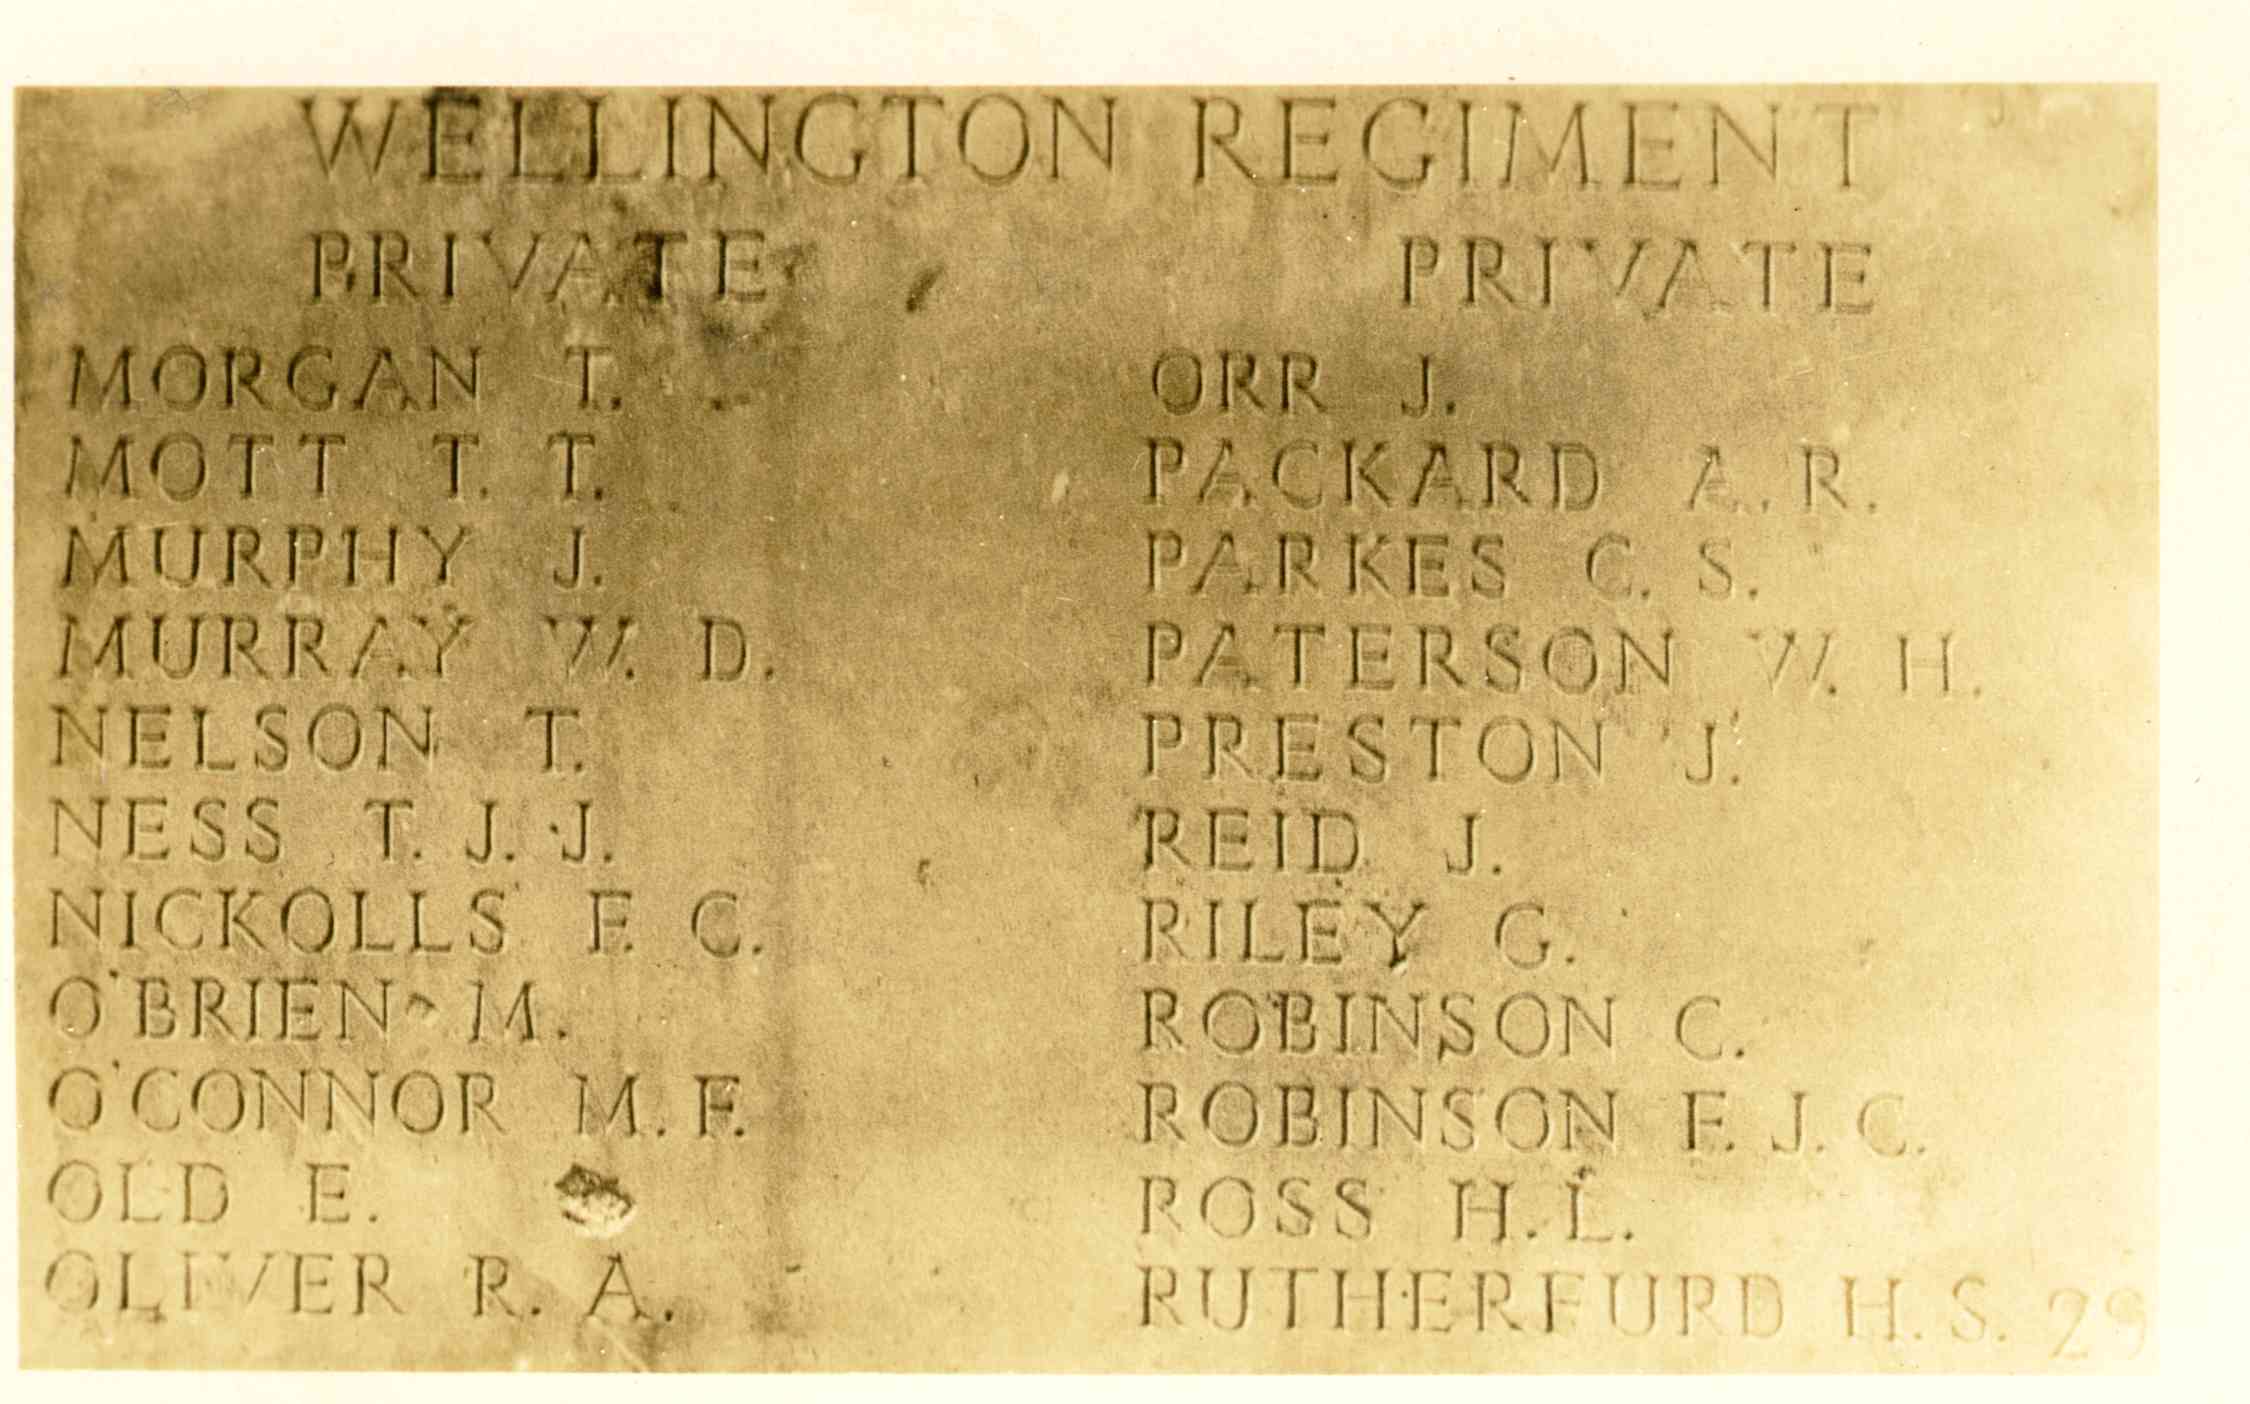 WELLINGTON REGIMENT
PRIVATE
MORGAN T.
MOTT T. T.
MURPHY J.
MURRAY W. D.
NELSON T.
NESS T. J. J.
NICKOLLS F. C.
O'BRIEN M.
O'CONNOR M. F.
OLD E.
OLIVER R. A.
PRIVATE
ORR J.
PACKARD A. R.
PARKES C. S.
PATERSON W. H.
PRESTON J.
REID J.
RILEY G.
ROBINSON C.
ROBINSON F. J. C.
ROSS H. L.
RUTHERFURD H. S.
29